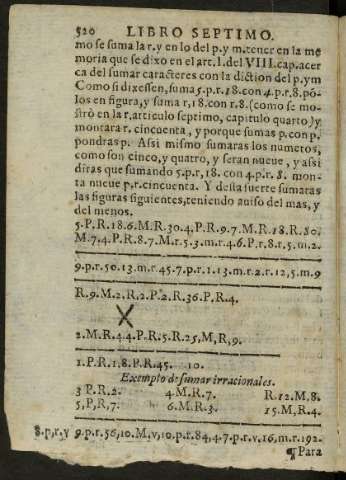 520 LIBRO SEPTIMO.
mo se suma la r.y en lo del p.y m.tener en la me
moria que se dixo en el art.1.del VIII.cap.acer
ca del sumar caracteres con la diction del p.y m
Como si dixessen, suma 5.p.r.18.con 4.p.r.8.pó-
los en figura,y suma r,18.con r.8.(como se mo-
strò en la r.articulo septimo, capitulo quarto)y
montara r. cincuenta, y porque sumas p.con p.
pondras p. Assi mismo sumaras los numeros,
como son cinco,y quatro, y seran nueue, y assi
diras que sumando 5.p.r,18. con 4.p.r.8. mon-
ta nueue p.r.cincuenta. Y desta suerte sumaras
las figuras siguientes,teniendo auiso del mas, y
del menos.
5.P.R.18.6.M.R.30.4,P.R.9.7.M.R.18.R.80.
M.7.4.P.R.8.7.M.r.5.3.m.r.4.6.P.r.8.r.5.m.2.
9.p.r.50.13.m.r.45.7.p.r.1.13.m.r.2.r.12,5.m.9
R.9.M.2.R.2.P.2.R.36.P.R.4.
X
2.M.R.4.4.P.R.5.R.25,M,R,9.
1.P.R.1.8.P.R.45. 10.
Exemplo de sumar irracionales.
3 P.R.2. 4.M.R.7. R.12.M.8.
5,P,R,7. 6.M.R.3. 15.M,R.4.
8.p,r,y 9.p.r.56,10.M,v,10.p.r.84,4.7.p.r.v.16,m.r.192.
¶Para